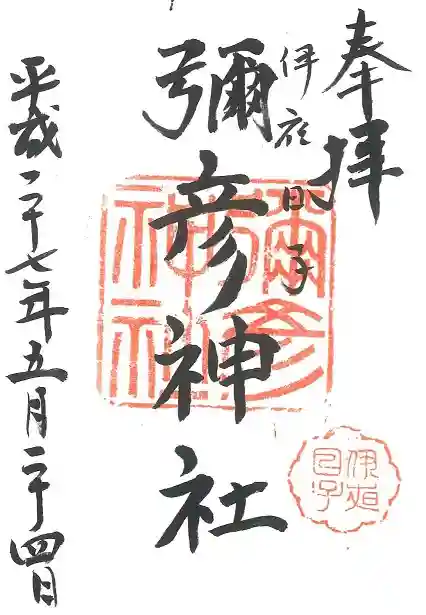 奉拝
伊夜日子
彌彦神社
平成二十七年五月二十四日
彌彦
神社